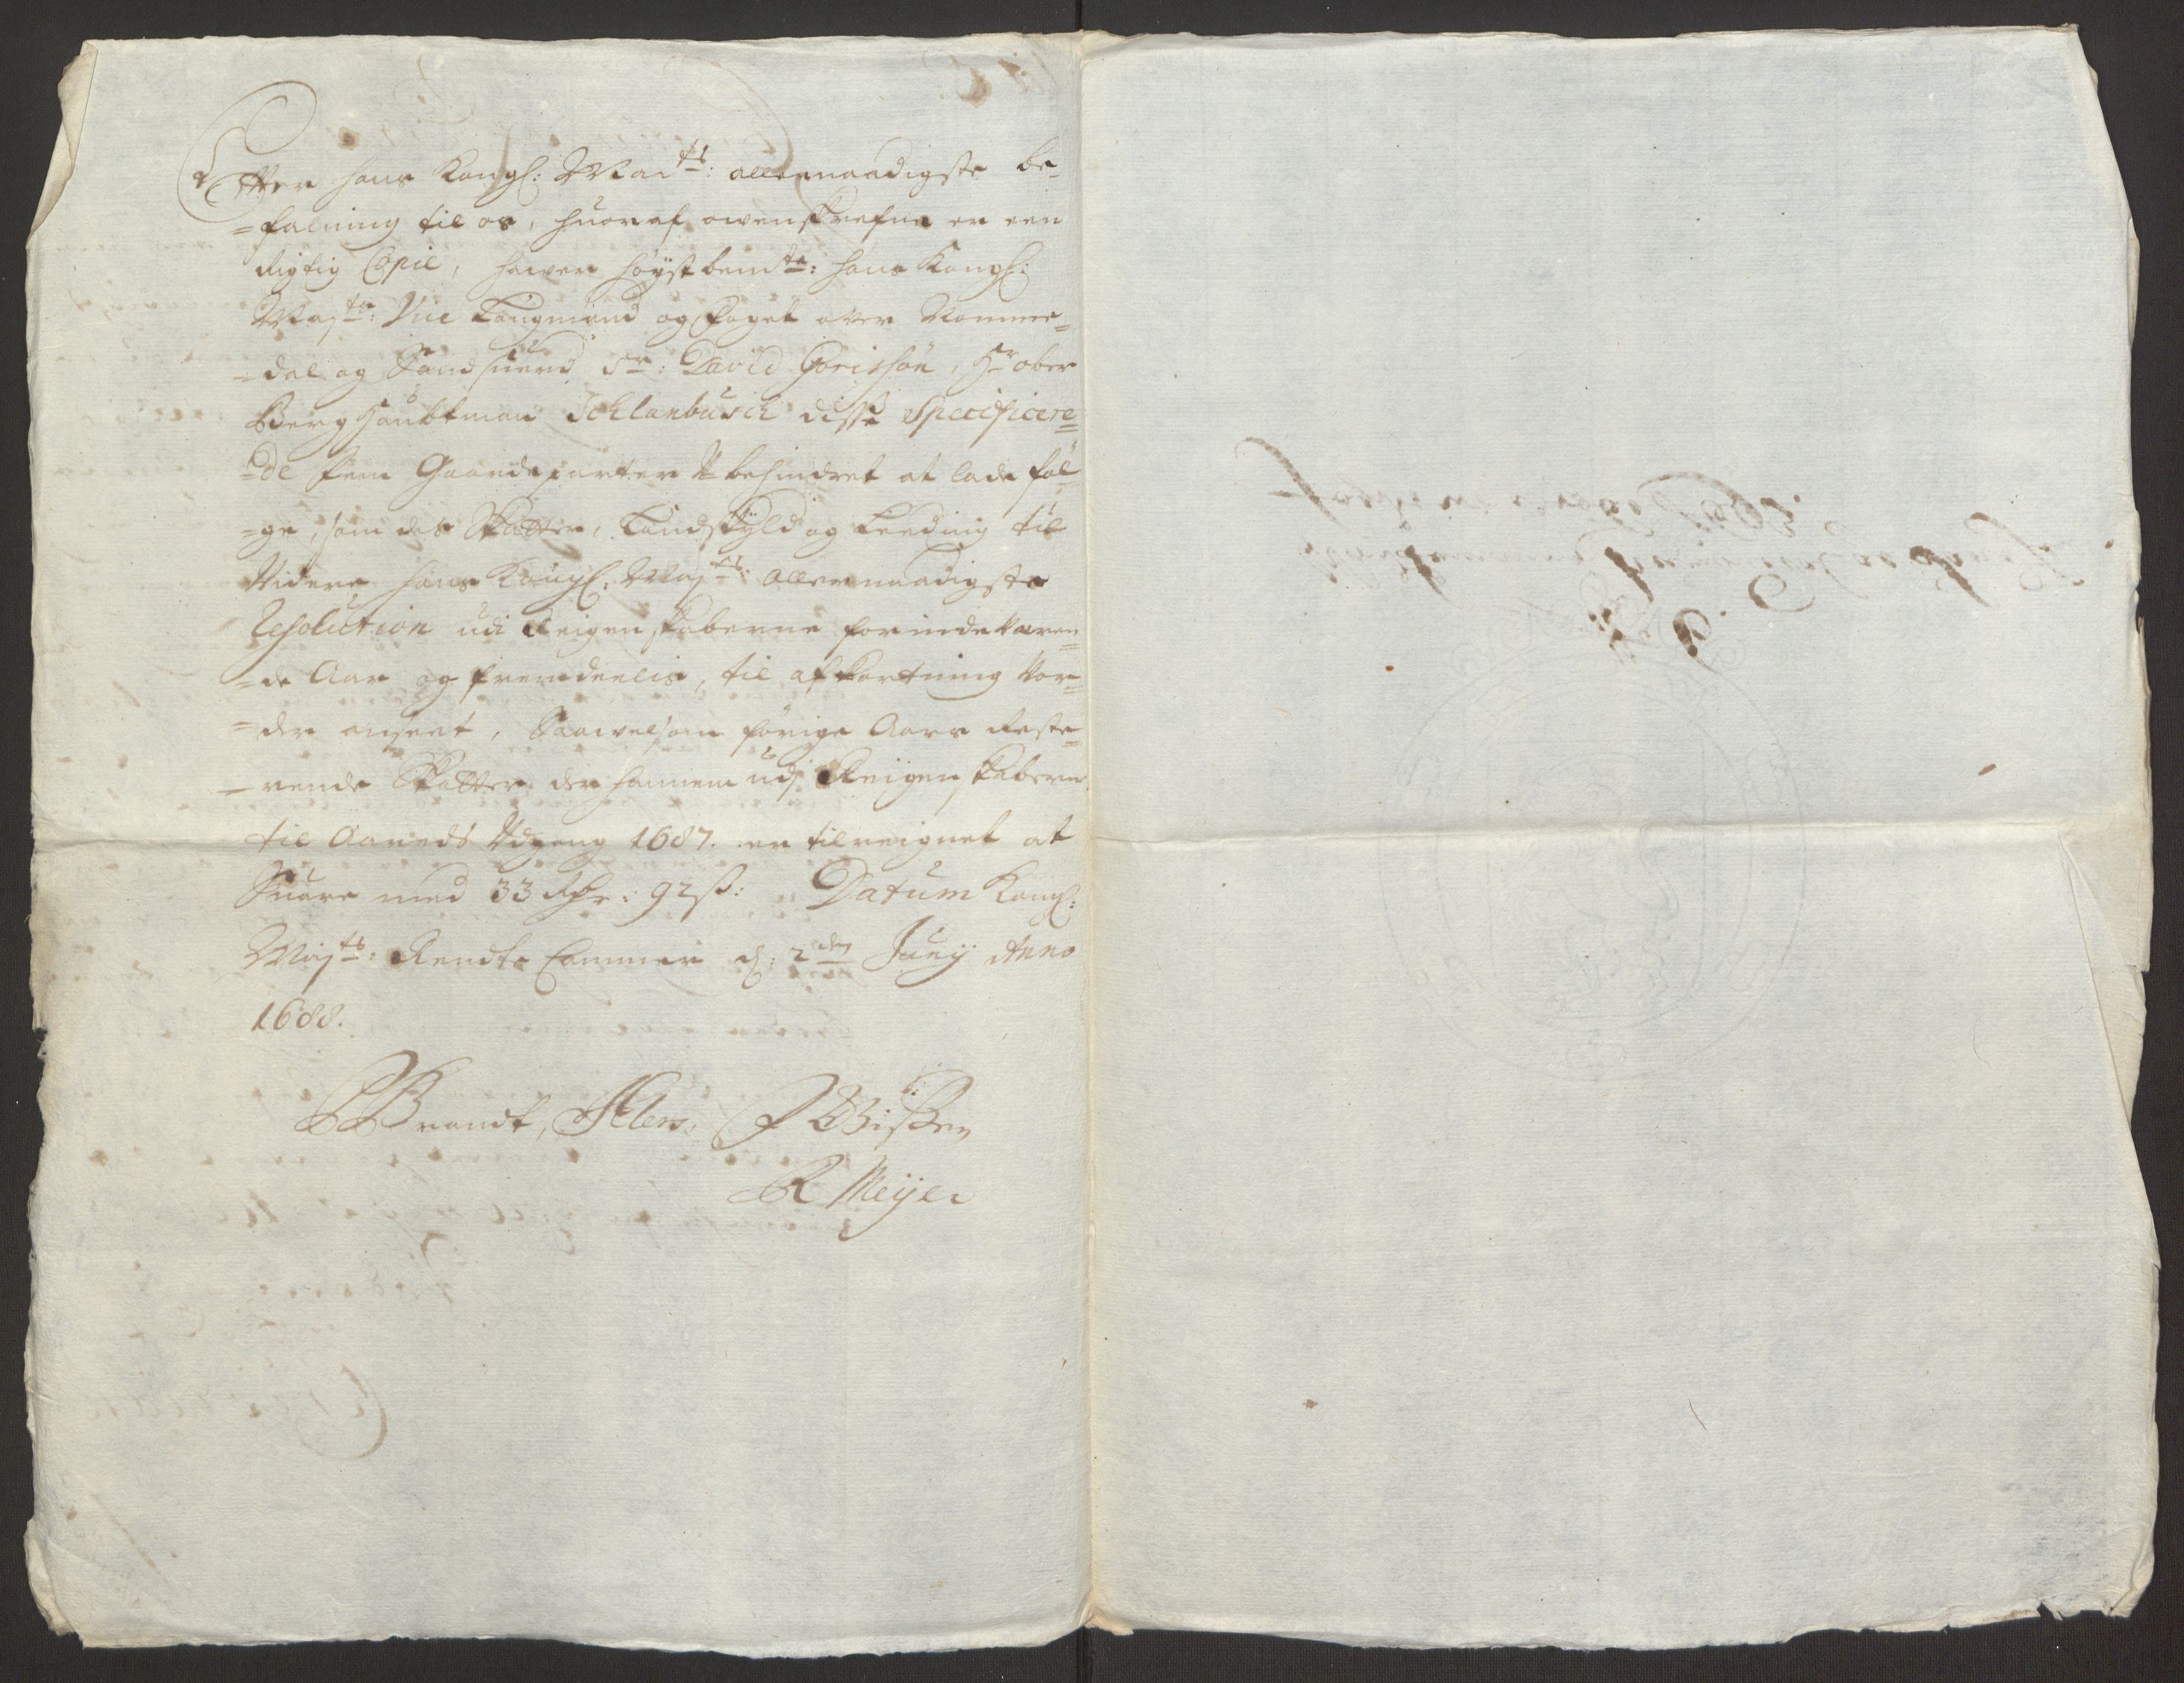 Effter hans Kongl: Mai^ts: allernaadigste be-
=falning til os, huoraf ovenskrefne er een
Rigtig Copie, hawer høystbem^te: hans Kongl:
Maj^ts: Vice Laugmand og foget over Nomme-
=dal og Sandsuerd S^r: David Gorissøn, H^r ober
Berg Haubtman Schlanbusch disse Specificere=
=de fem Gaardeparter Ubehindret at lade føl
=ge, som des Skatter, Landskyld og Leeding til
Videre hans Kongl: Maj^ts: Allernaadigste
Resolution udi Reigenskaberne for indewæren=
=de Aar og fremdeelis, til afkortning vor=
=der anseet, Saavelsom forige Aars Reste=
=rende Skatter der hannem udj Reigenskaberne
til Aarids Udgang 1687. er tilreignet at
Suare med 33 Rdr: 92 ß: Datum Kongl:
Maj^ts: Rendte Cammer d: 2^den Junij Anno
1688.
P Brandt, H Lers, J Wissen
R Meyer